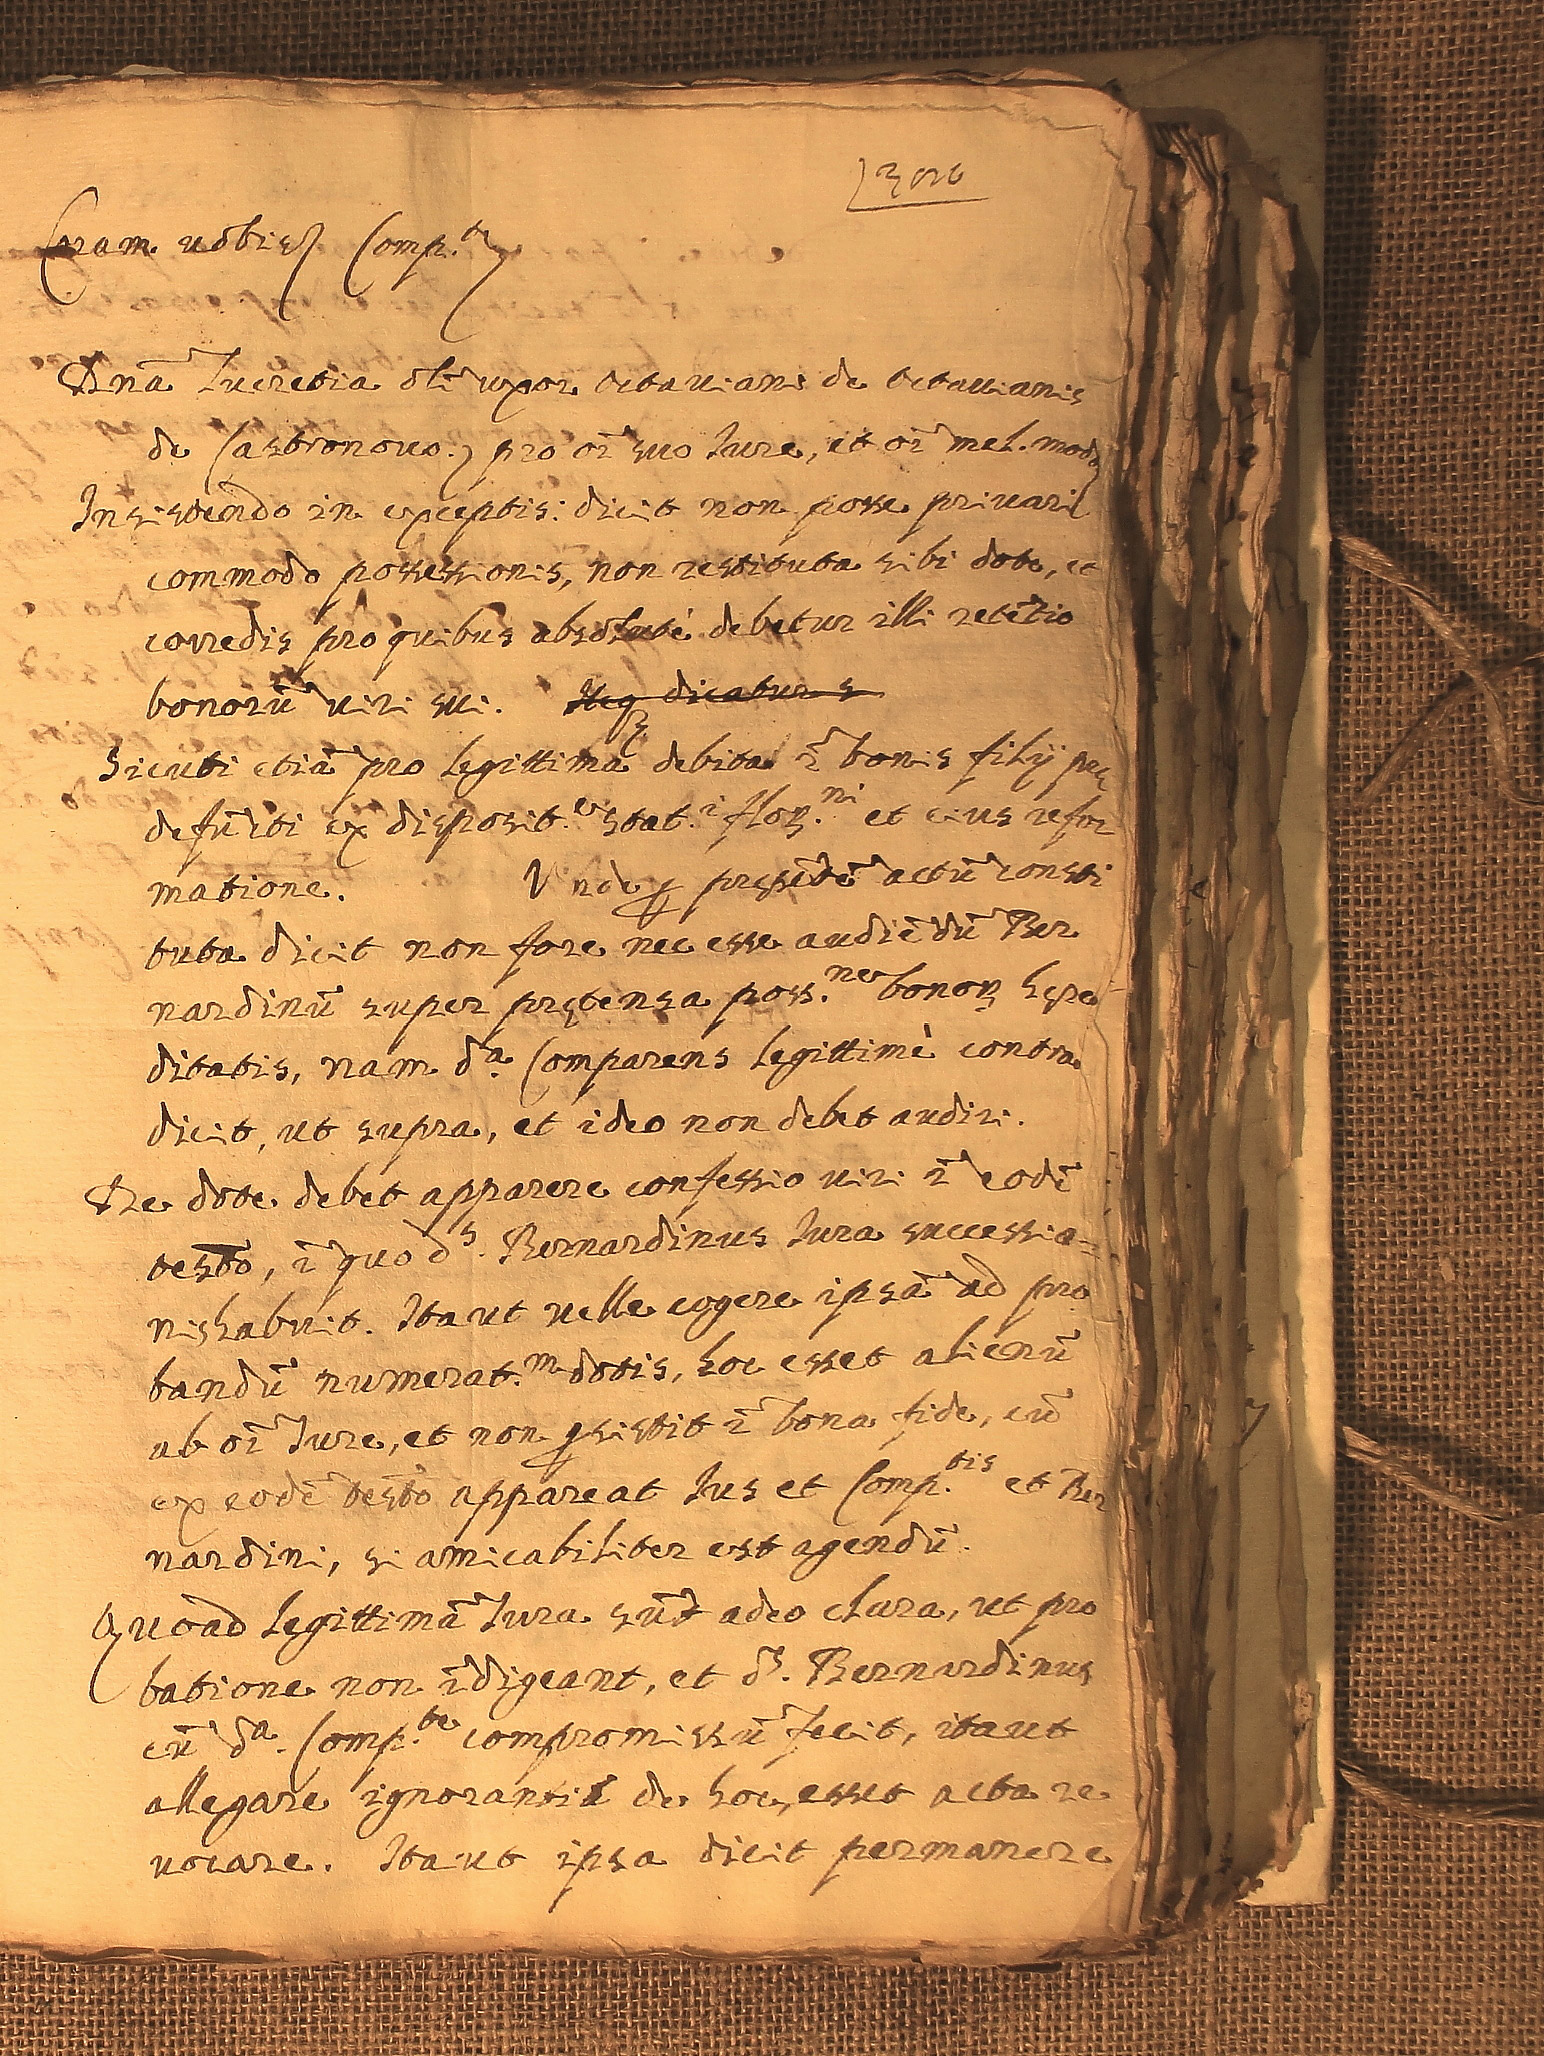 Coram uobis Comp.te
Dnã Lucretia olĩ uxor octauiani de octauianis
de Castronouo. pro oĩ suo Iure, et oĩ mel. modo
Insistendo in exceptis: dicit non posse priuari
commodo possessionis, non restituta sibi dote, et
corredis pro quibus absolutè debetur illi retẽtio
bonorũ uiri sui. Neq dicatur s
Sicuti etiã pro legittima debita ĩ bonis filij pre
defũcti ex disposit.e stat.i flor.ni et eius refor
matione. Unde p presẽtẽ actũ consti
tuta dicit non fore nec esse audiẽdũ Ber
nardinũ super pretensa poss.ne bonor here
ditatis, nam d.a Comparens legittimè contra
dicit, ut supra, et ideo non debet audiri.
De dote debet apparere confessio uiri ĩ eodẽ
testo, ĩ quo d.s Bernardinus Iura successio=
nis habuit. Ita ut uelle cogere ipsã ad pro
bandũ numerat.m dotis, hoc esset alienũ
ab oĩ Iure, et non psistit ĩ bona fide, cũ
ex eodẽ testo appareat Ius et Comp.tis et Ber
nardini, si amicabiliter est agendũ.
Quoad legittimã Iura sũt adeo clara, ut pro
batione non ĩdigeant, et d.s Bernardinus
cũ d.a Comp.te compromissũ fecit, ita ut
allegare ignoranti de hoc, esset acta re
uocare. Ita ut ipsa dicit permanere